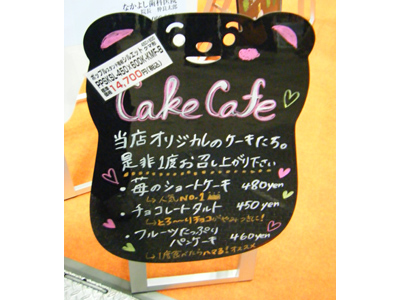 なかよし歯科医院
PPSKSL450×600K-KMF-B
14,700円(税込)
Cake Cafe
当店オリジナルのケーキたち。
是非1度お召し上がり下さい
・苺のショートケーキ 480yen
↳人気NO.1
・チョコレートタルト 450yen
↳とろ〜りチョコが
・フルーツたっぷり
パンケーキ 460yen
↳1度食